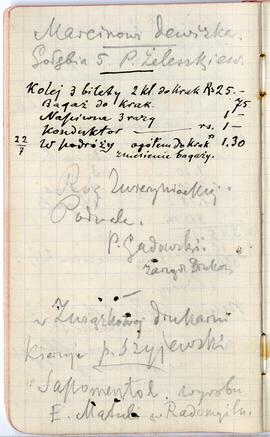 Marcinowi dewizka.
Gołębia 5 P. Zeleskiew.
Kolej 3 bilety 2 kl do krak Rs 25.—
Bagaż do Krak. 75
Napiwne 3 razy 1 —
Konduktor — rs. 1 —
22/7 w podróży ogółem do Krak 1.30
zniesienie bagaży.
Róg Zwierzynieckiej
Podwale.
P. Gadowski.
Zarząd Drukar
w Związkowej drukarni
Kieruje p. Szyjewski
"Sapomentol wyrobu
E. Matuli w Radomyślu.